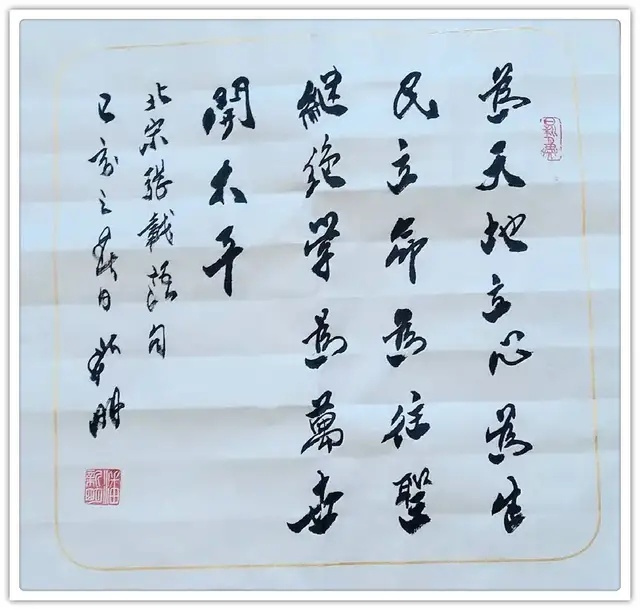 為天地立心為生
民立命為往聖
継绝学為萬世
開太平
北宋張載語句
己亥之春日